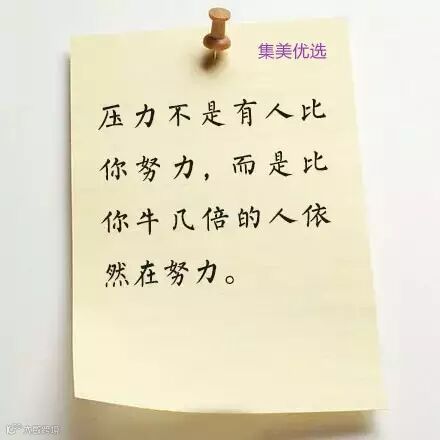 集美优选
压力不是有人比
你努力，而是比
你牛几倍的人依
然在努力。
大数跨境